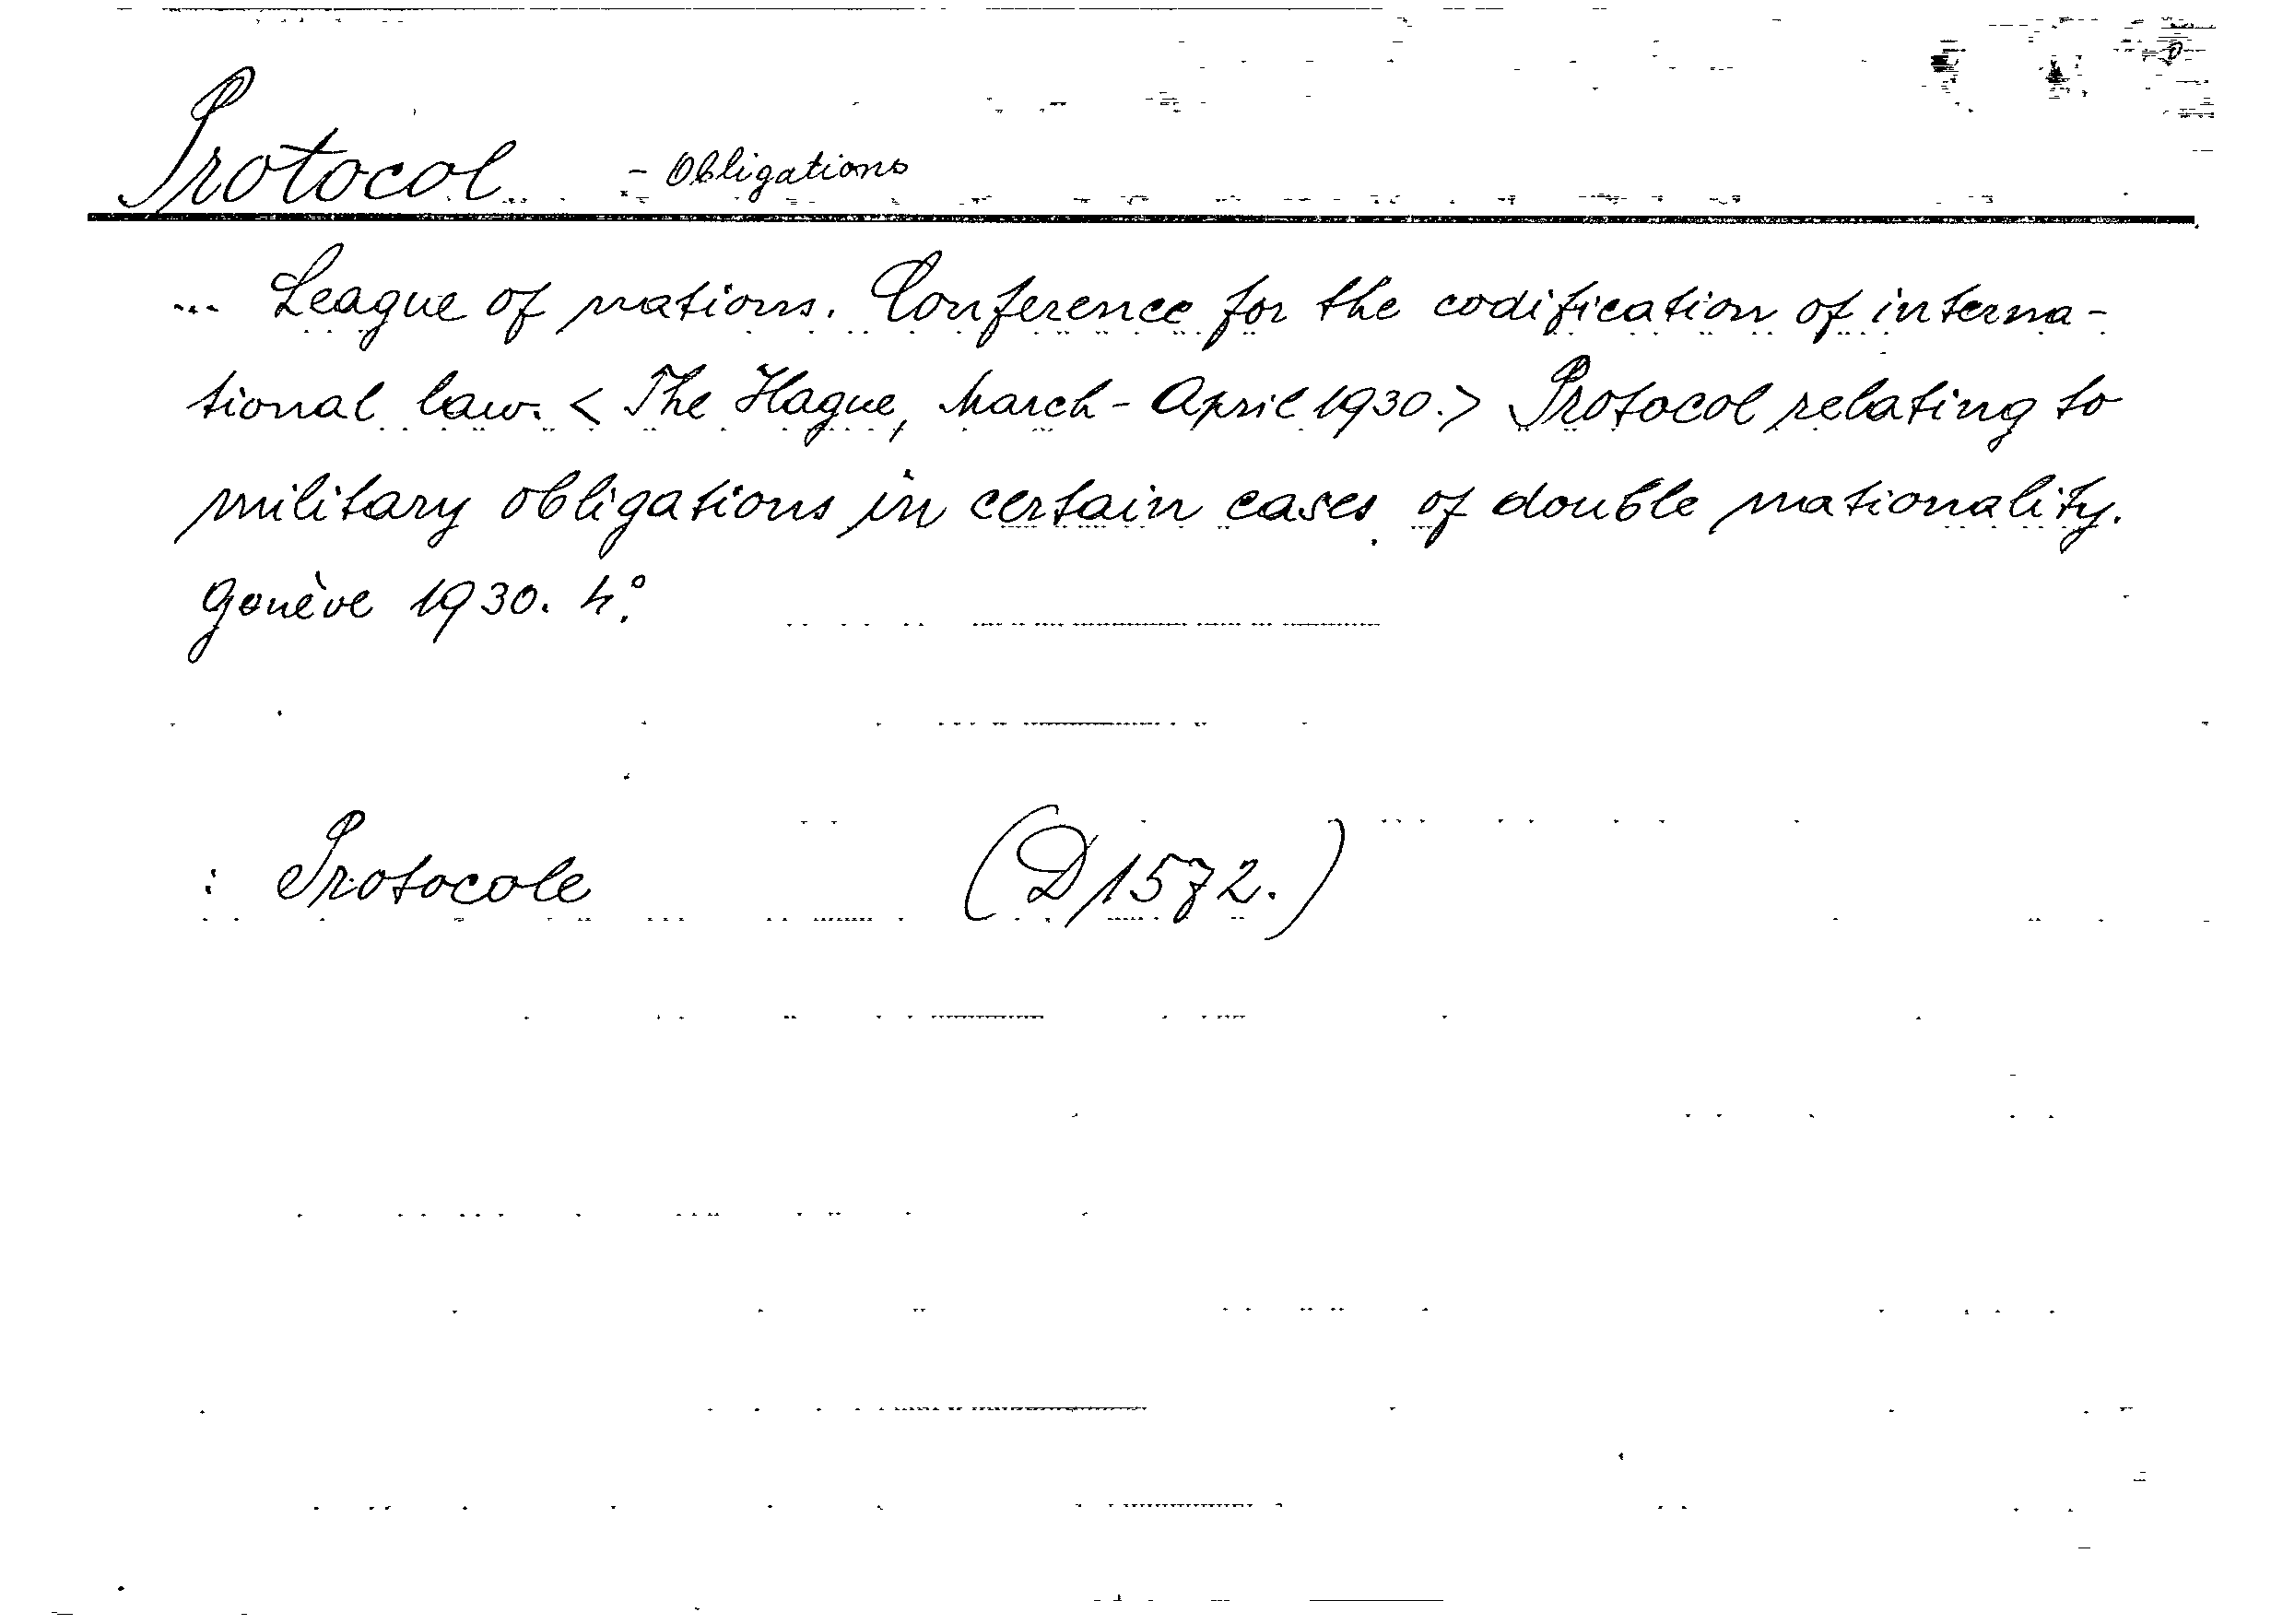 Protocol - Obligations
... League of nations. Conference for the codification of interna-
tional law. < The Hague, March - April 1930.> Protocol relating to
military obligations in certain cases of double nationality.
Genève 1930. 4°.
: Protocole (D 1572.)